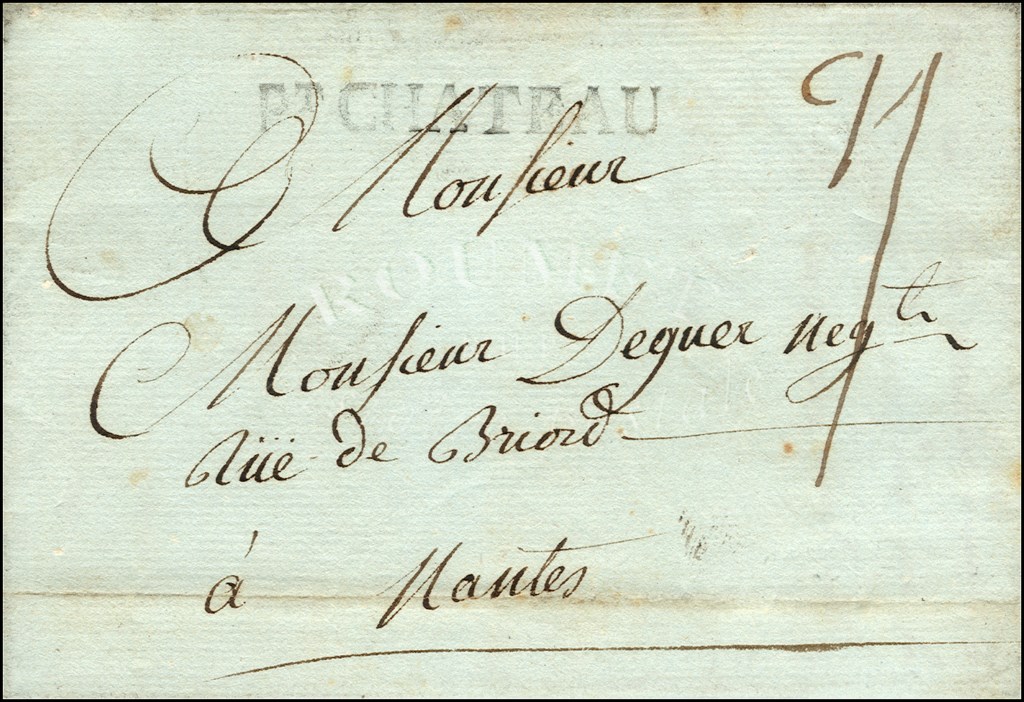 PT CHATEAU
Monsieur
Monsieur Deguer negt
Rüe de Briord
à Nantes